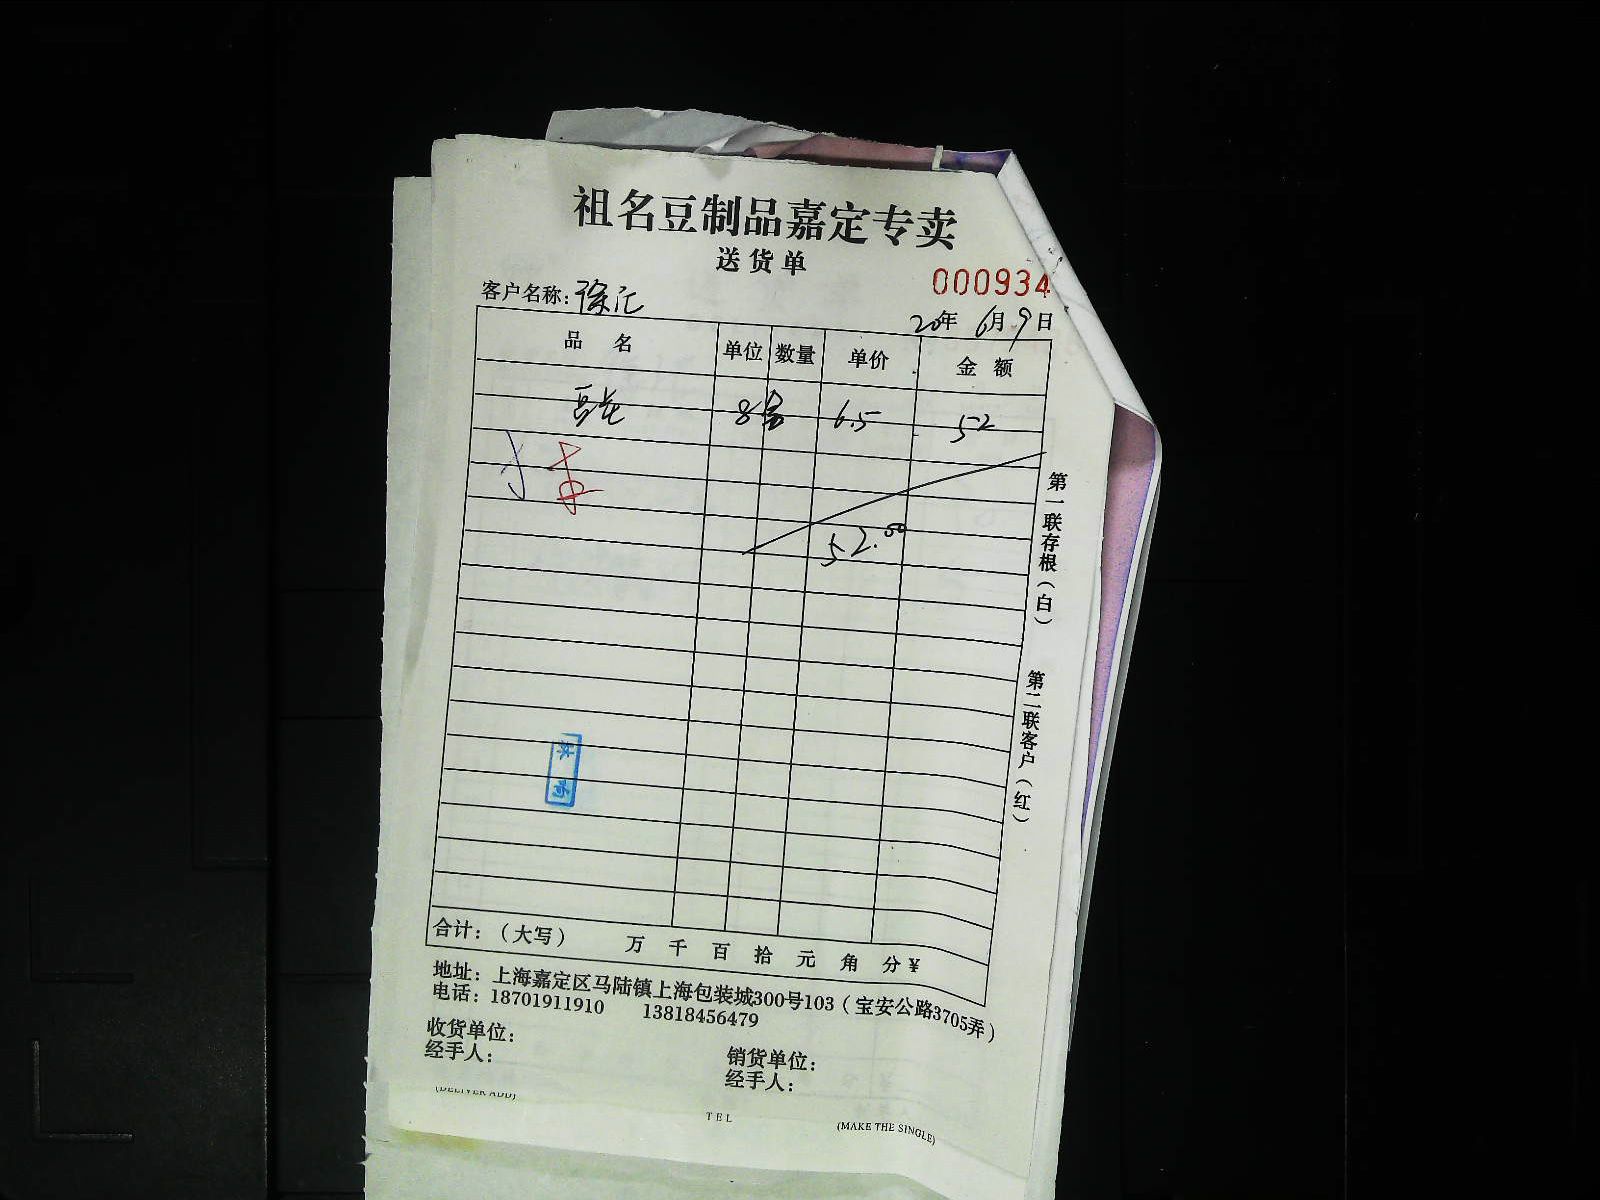 祖名豆制品嘉定专卖
送货单
000934
客户名称：徐汇
20年 6月 9日
品 名 单位 数量 单价 金 额
豆花 8盒 6.5 52
52.00
第一联存根（白）
第二联客户（红）
合计：（大写） 万 千 百 拾 元 角 分 ¥
地址：上海嘉定区马陆镇上海包装城300号103（宝安公路3705弄）
电话：18701911910 13818456479
收货单位：
经手人：
销货单位：
经手人：
(DELIVER ADD)
TEL
(MAKE THE SINGLE)